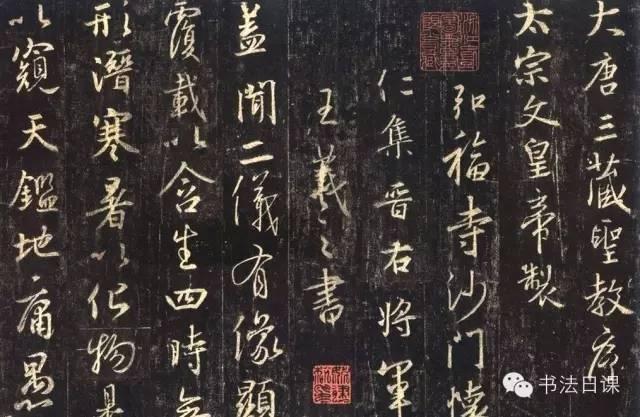 大唐三藏聖教序
太宗文皇帝製
弘福寺沙門懷
仁集晉右將軍
王羲之書
蓋聞二儀有像顯
覆載以含生四時無
形潛寒暑以化物是
以窺天鑑地庸愚
书法日课